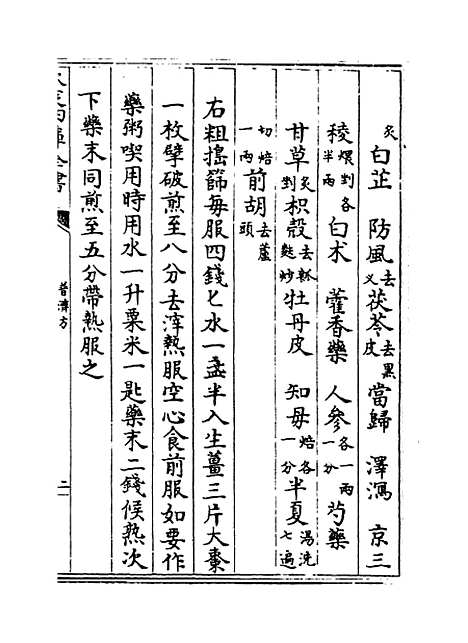 炙白芷 防風去义茯苓去黑皮當歸 澤瀉 京三
稜煨剉各半兩白术 藿香藥 人參各一兩一分芍藥
甘草炙剉枳殼去瓤麩炒牡丹皮 知母焙各一分半夏湯洗七遍
切焙一兩前胡去蘆頭
右粗搗篩每服四錢匕水一盞半入生薑三片大棗
一枚擘破煎至八分去滓熱服空心食前服如要作
藥粥喫用時用水一升粟米一匙藥末二錢候熱次
下藥末同煎至五分帶熱服之
普濟方
二